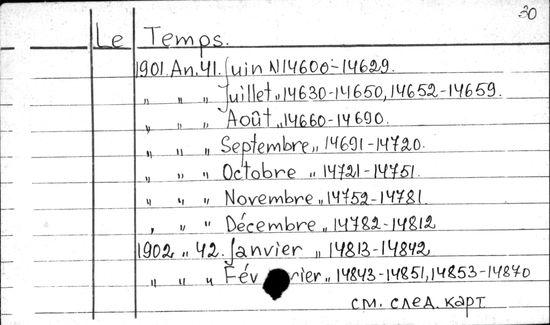 30
Le Temps.
1901. An. 41. Juin N 14600-14629.
„ „ „ Juillet „ 14630-14650, 14652-14659.
„ „ „ Août „ 14660-14690.
„ „ „ Septembre „ 14691-14720.
„ „ „ Octobre „ 14721-14751.
„ „ „ Novembre „ 14752-14781.
„ „ „ Décembre „ 14782-14812
1902 „ 42. Janvier „ 14813-14842
„ „ „ Février „ 14843-14851, 14853-14870
см. след. карт